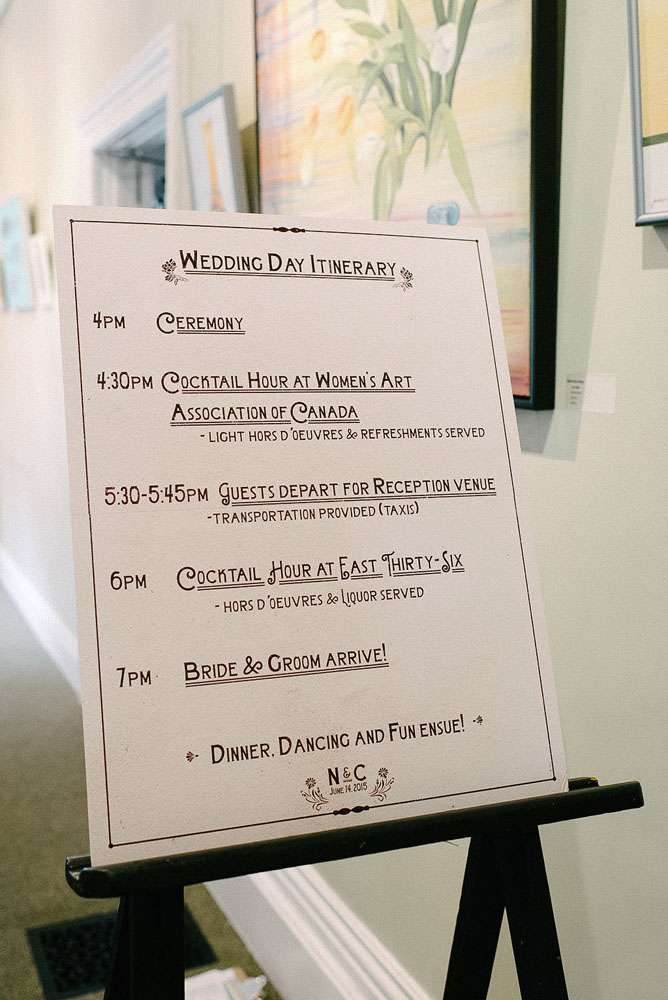 Wedding Day Itinerary
4PM Ceremony
4:30PM Cocktail Hour at Women's Art
Association of Canada
- Light hors d'oeuvres & refreshments served
5:30-5:45PM Guests depart for Reception venue
-Transportation provided (taxis)
6PM Cocktail Hour at East Thirty-Six
- Hors d'oeuvres & Liquor served
7PM Bride & Groom arrive!
Dinner, Dancing and Fun ensue!
N & C
June 14 2015